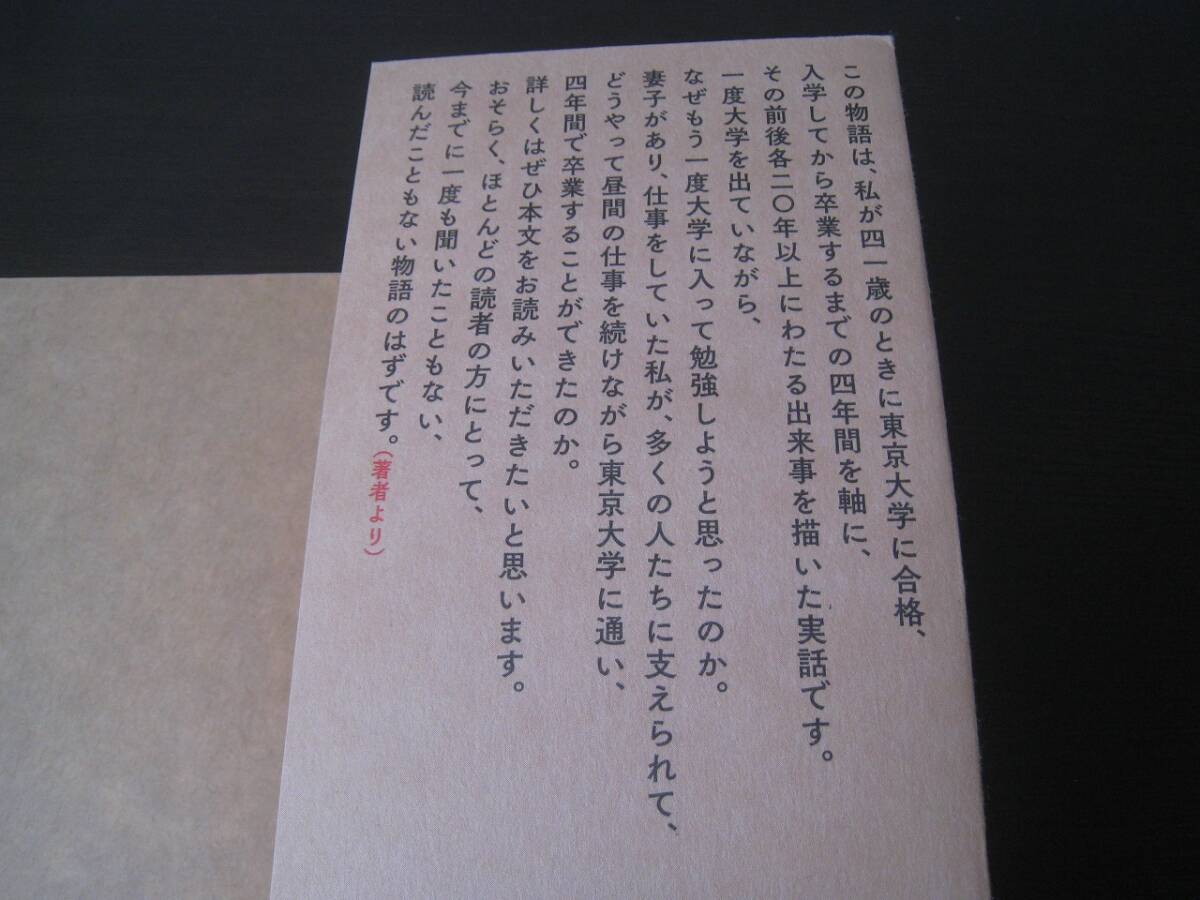 この物語は、私が四一歳のときに東京大学に合格、
入学してから卒業するまでの四年間を軸に、
その前後各二〇年以上にわたる出来事を描いた実話です。
一度大学を出ていながら、
なぜもう一度大学に入って勉強しようと思ったのか。
妻子があり、仕事をしていた私が、多くの人たちに支えられて、
どうやって昼間の仕事を続けながら東京大学に通い、
四年間で卒業することができたのか。
詳しくはぜひ本文をお読みいただきたいと思います。
おそらく、ほとんどの読者の方にとって、
今までに一度も聞いたこともない、
読んだこともない物語のはずです。（著者より）